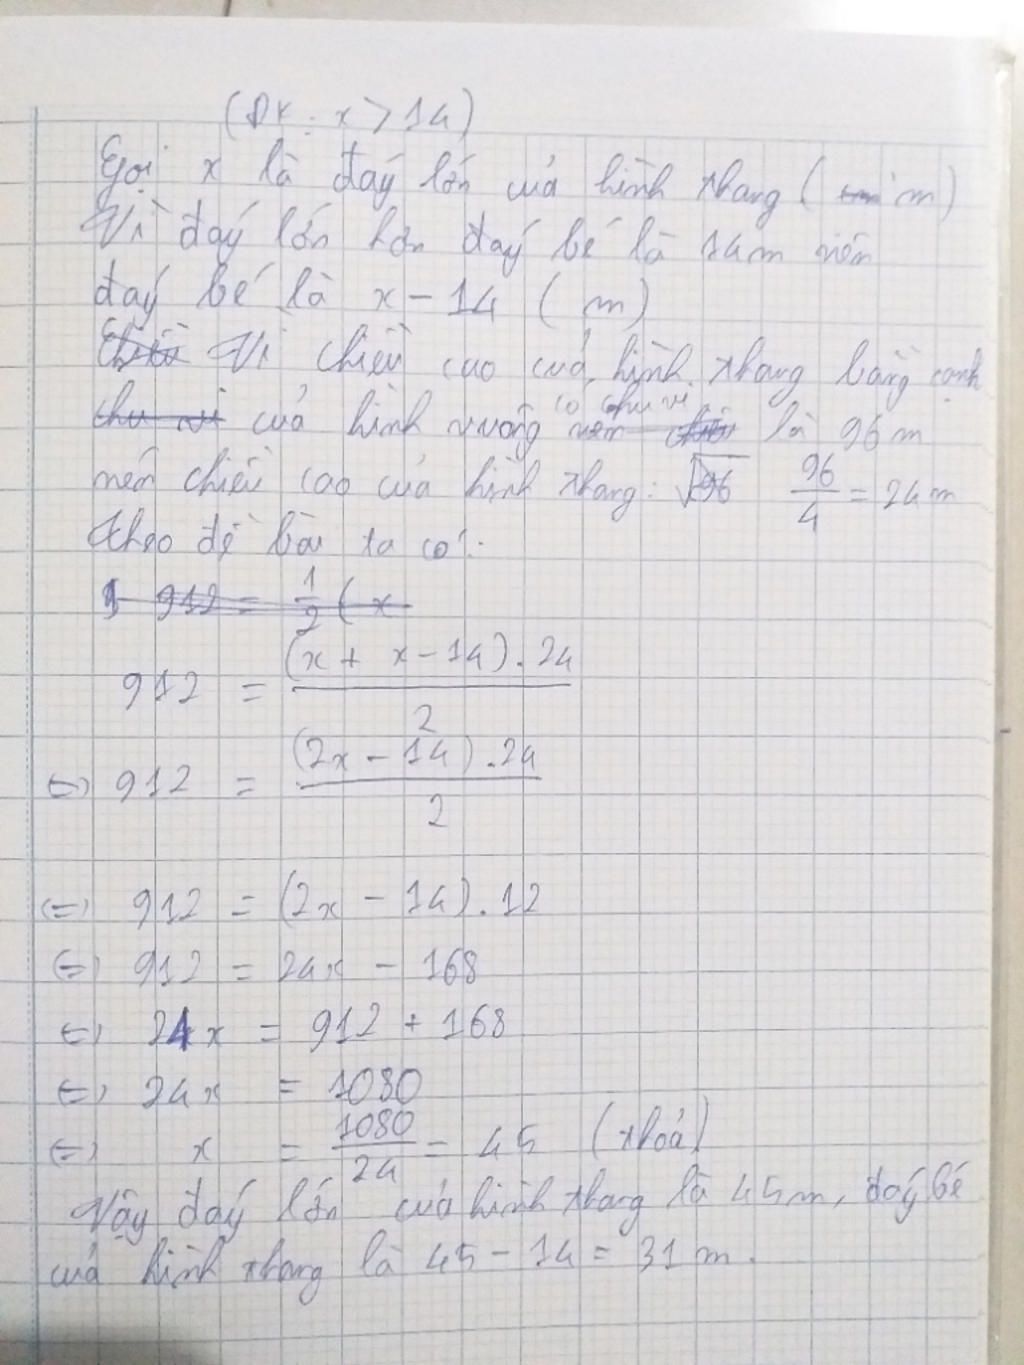 (ĐK: x > 14)
Gọi x là đáy lớn của hình thang ( m)
Vì đáy lớn hơn đáy bé là 14m nên
đáy bé là x - 14 ( m)
Vì chiều cao của hình thang bằng cạnh
của hình vuông có chu vi là 96 m
nên chiều cao của hình thang: 96/4 = 24 m
Theo đề bài ta có:
912 = 1/2 ( x
912 = (x + x - 14) . 24 / 2
<=> 912 = (2x - 14) . 24 / 2
<=> 912 = (2x - 14) . 12
<=> 912 = 24x - 168
<=> 24x = 912 + 168
<=> 24x = 1080
<=> x = 1080/24 = 45 (thoả)
Vậy đáy lớn của hình thang là 45m, đáy bé
của hình thang là 45 - 14 = 31 m.